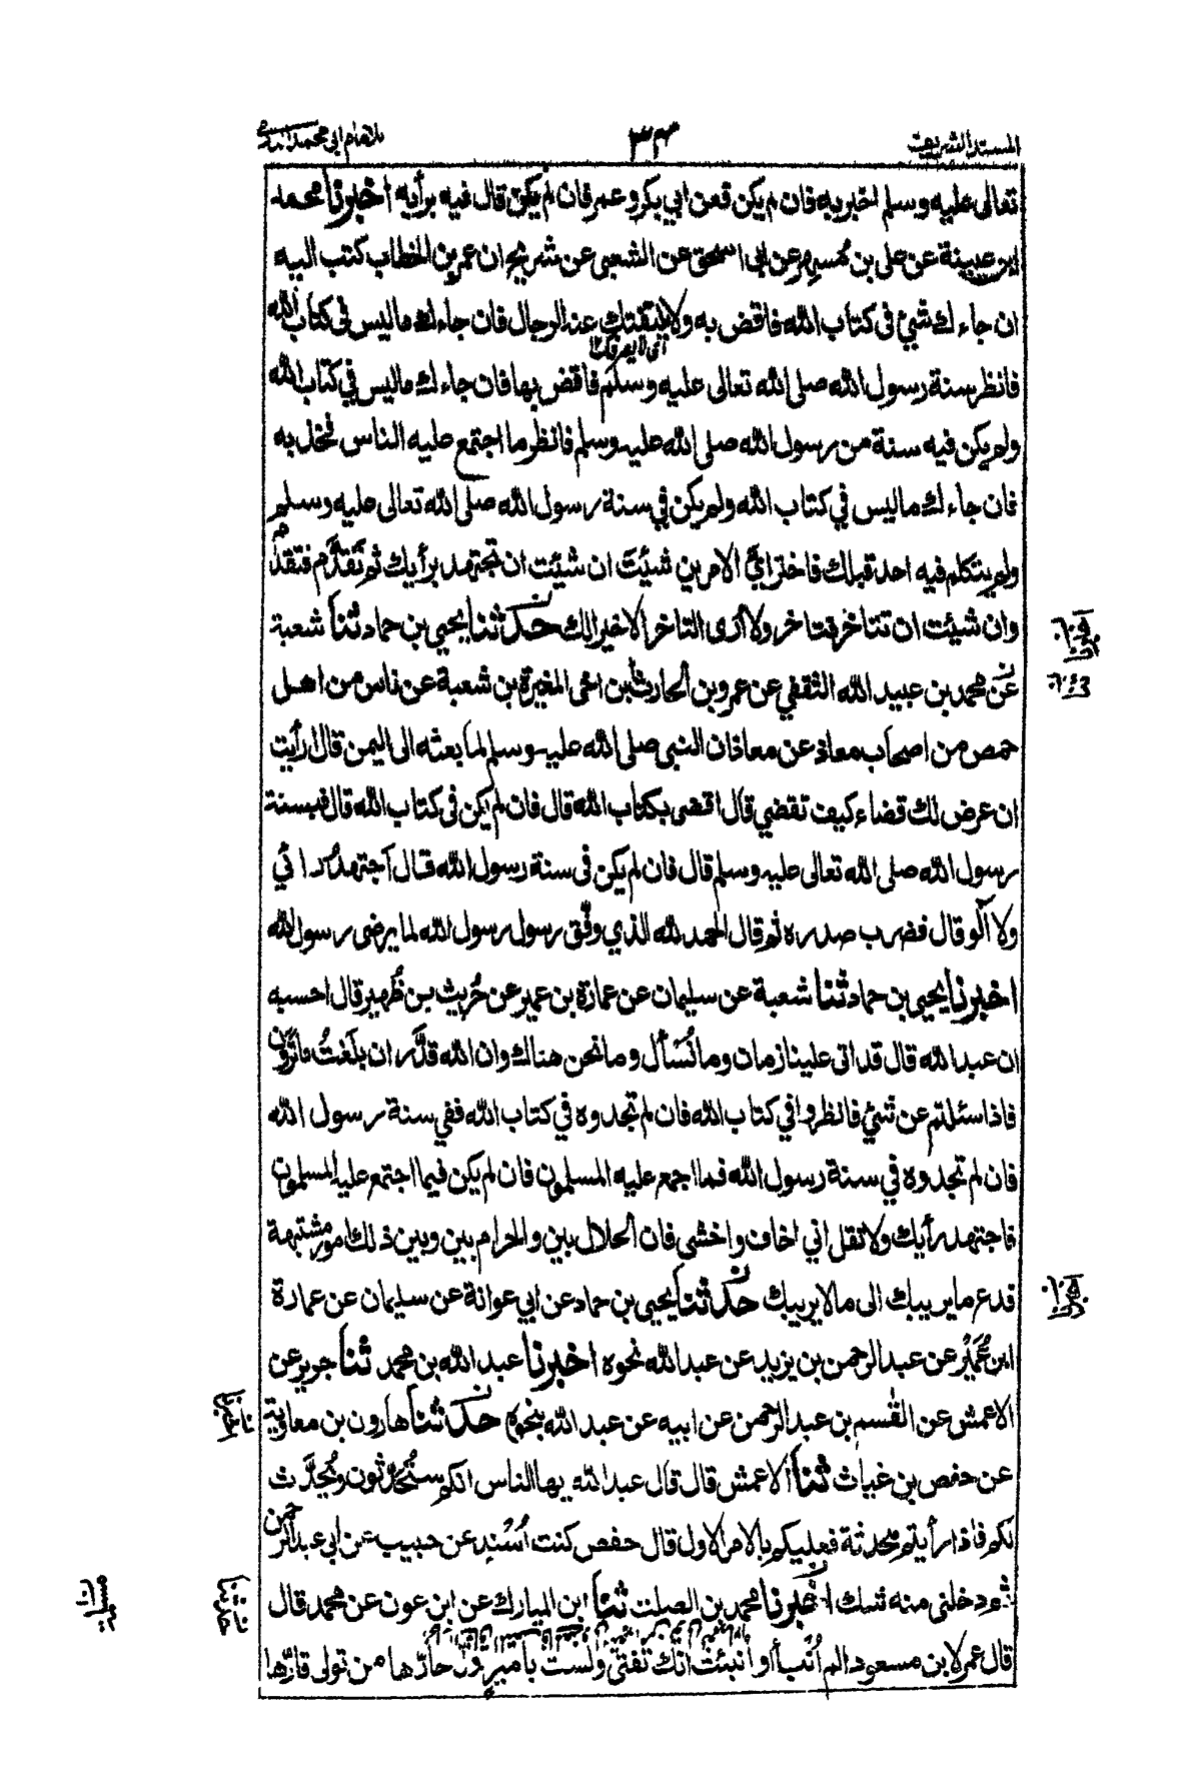 المسند الشريعت
٣٤
للامام ابي محمد الدارمي
تعالى عليه وسلم اخبر به فان لم يكن فعن ابي بكر وعمر فان لم يكن قال فيه برأيه اخبرنا محمد
ابن عيينة عن علي بن مسهر عن ابى اسحق عن الشعبى عن شريح ان عمر بن الخطاب كتب اليه
ان جاءك شيئ فى كتاب الله فاقض به ولا يلتفتك عنه الرجال فان جاءك ماليس فى كتاب الله
اى لا يصرفك
فانظر سنة رسول الله صلى الله تعالى عليه وسلم فاقض بها فان جاءك ماليس في كتاب الله
ولم يكن فيه سنة من رسول الله صلى الله عليه وسلم فانظر ما اجتمع عليه الناس فخذ به
فان جاءك ماليس في كتاب الله ولم يكن في سنة رسول الله صلى الله تعالى عليه وسلم
ولم يتكلم فيه احد قبلك فاختر ايَّ الامرين شئتَ ان شئت ان تجتهد برأيك ثم تَقدَّم فتقدَّم
وان شيئت ان تتاخر فتاخر ولا اَرى التاخر الا خيرا لك حدثنا يحيى بن حماد ثنا شعبة
عن محمد بن عبيد الله الثقفي عن عمرو بن الحارث بن اخى المغيرة بن شعبة عن ناس من اهل
حمص من اصحاب معاذ عن معاذ ان النبى صلى الله عليه وسلم لما بعثه الى اليمن قال ارأيت
ان عرض لك قضاء كيف تقضي قال اقضى بكتاب الله قال فان لم يكن فى كتاب الله قال فبسنة
رسول الله صلى الله تعالى عليه وسلم قال فان لم يكن فى سنة رسول الله قال اجتهد رائي
ولا آلو قال فضرب صدره ثم قال الحمد لله الذي وفّق رسول رسول الله لما يرضى رسول الله
اخبرنا يحيى بن حماد ثنا شعبة عن سليمان عن عمارة بن عمير عن حُريث بن ظُهير قال احسبه
ان عبد الله قال قد اتى علينا زمان وما نُسْأل وما نحن هناك وان الله قدَّر ان بلَغتُ ماتَرَون
فاذا سئلتم عن شيئ فانظروا في كتاب الله فان لم تجدوه في كتاب الله ففي سنة رسول الله
فان لم تجدوه في سنة رسول الله فما اجمع عليه المسلمون فان لم يكن فيما اجتمع عليه المسلمون
فاجتهد رأيك ولا تقل اني اخاف واخشى فان الحلال بين والحرام بين وبين ذلك امور مشتبهة
فدع ما يريبك الى ما لا يريبك حدثنا يحيى بن حماد عن ابي عوانة عن سليمان عن عمارة
ابن عُمَيْر عن عبد الرحمن بن يزيد عن عبد الله نحوه اخبرنا عبد الله بن محمد ثنا جرير عن
الاعمش عن القٰسم بن عبد الرحمن عن ابيه عن عبد الله بنحوه حدثنا هارون بن معاوية
عن حفص بن غياث ثنا الاعمش قال قال عبد الله يها الناس انكم ستُحدَّثون ويُحدَّث
لكم فاذا رأيتم محدثة فعليكم بالامر الاول قال حفص كنت اُسْنِد عن حبيب عن ابي عبد الرحمن
ثم دخلنى منه شك اخبرنا محمد بن الصلت ثنا ابن المبارك عن ابن عون عن محمد قال
قال عمر لابن مسعود الم اُنَبأ او انبئت انك تفتى ولست بامير وَلِّ حارّها من تولى قارّها